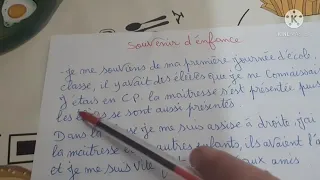 Souvenir d'enfance
Je me souviens de ma première journée d'école,
classe, il y avait des élèves que je ne connaissais
J'étais en C.P. la maitresse s'est présentée puis
les se sont aussi présentés.
Dans la je me suis assise à droite, j'ai
la maitresse autres enfants, ils avaient l'a
et je me suis vite aux amis